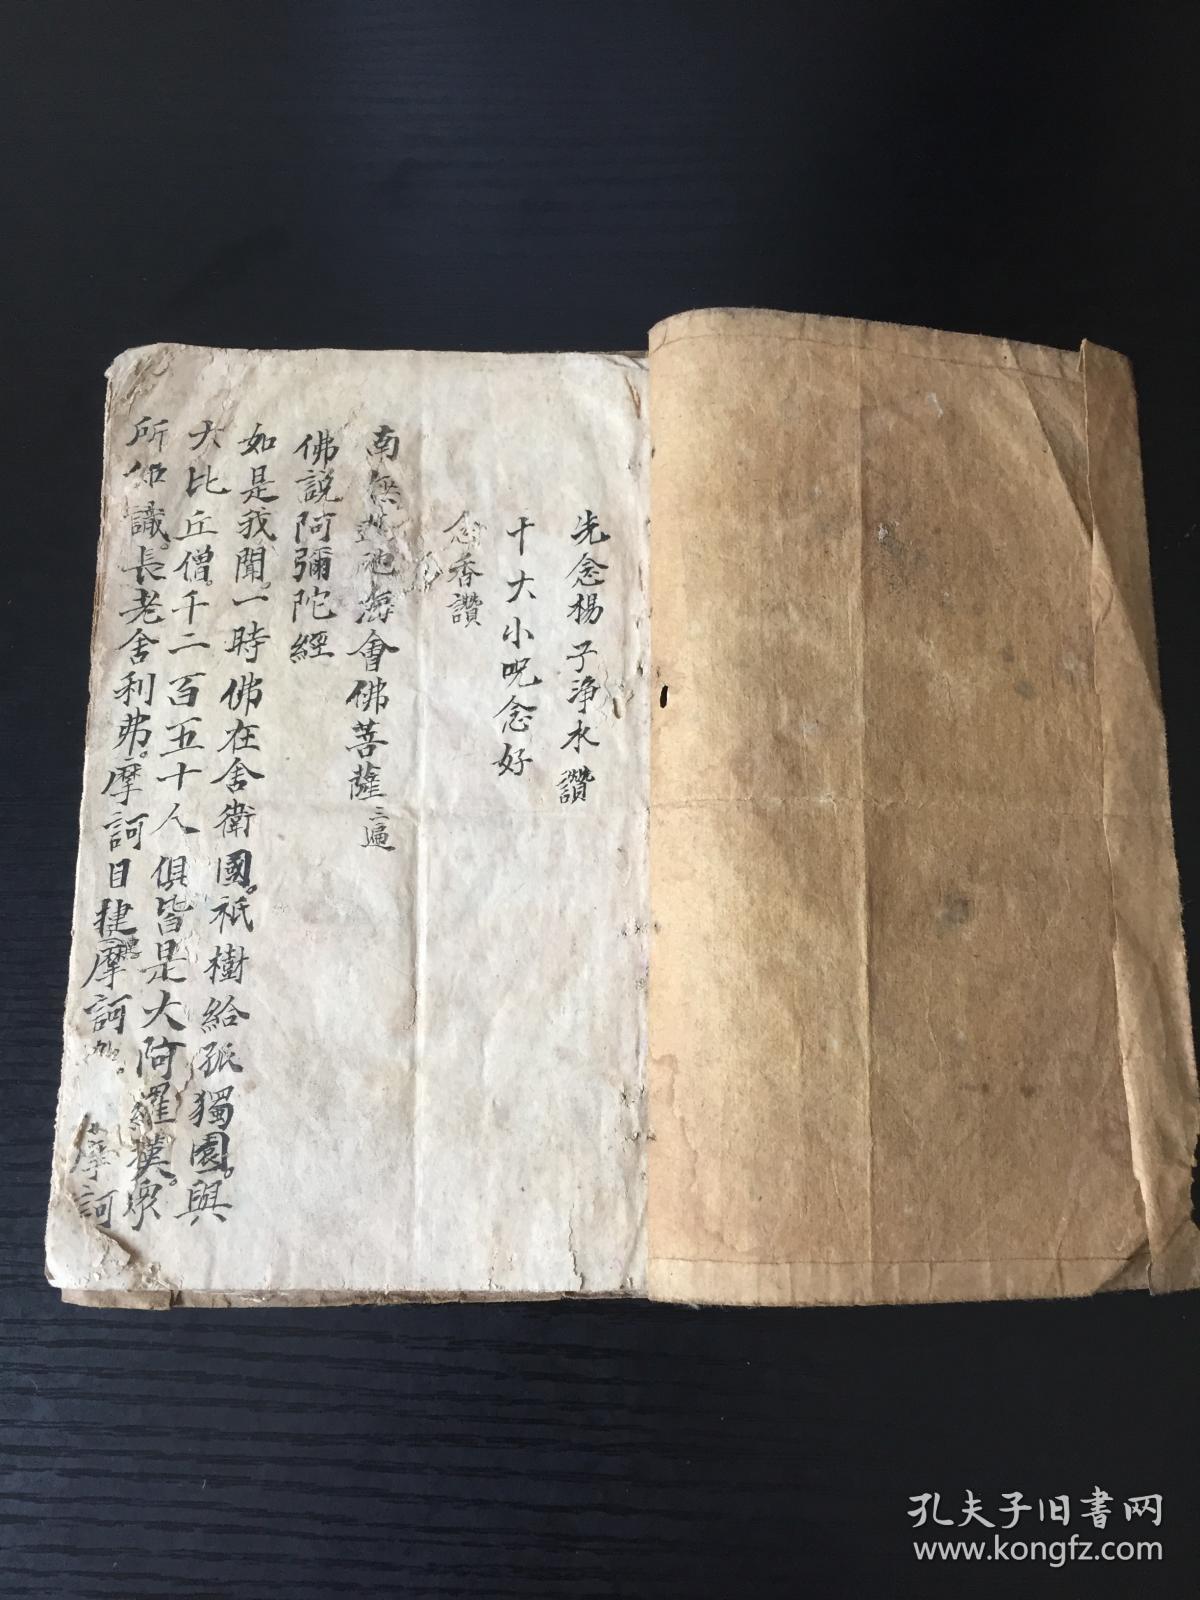 先念楊子淨水讚
十大小呪念好
念香讚
南無蓮池海會佛菩薩三遍
佛説阿彌陀經
如是我聞。一時佛在舍衛國。祇樹給孤獨園。與
大比丘僧。千二百五十人俱皆是大阿羅漢。衆
所知識。長老舍利弗。摩訶目犍連摩訶。摩訶
孔夫子旧书网
www.kongfz.com